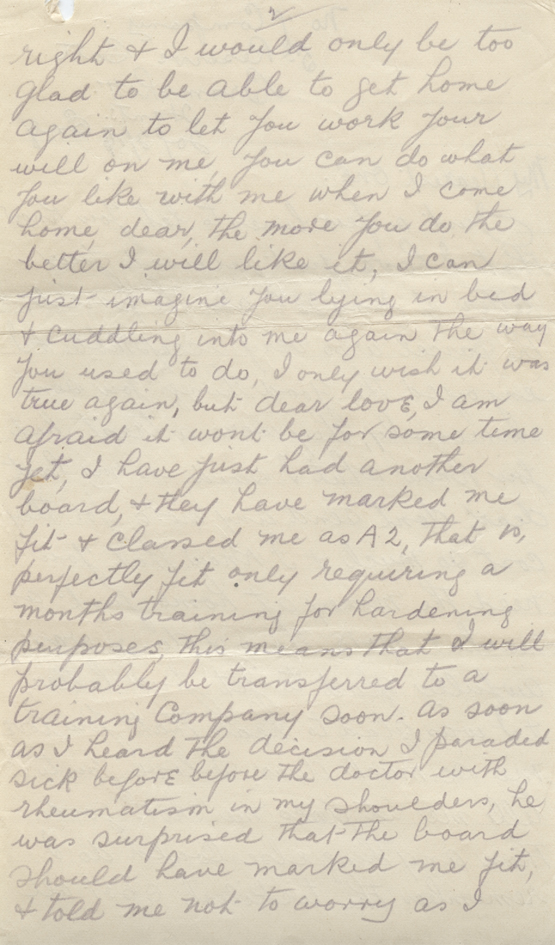 2
right & I would only be too
glad to be able to get home
again to let you work your
will on me, you can do what
you like with me when I come
home, dear, the more you do the
better I will like it, I can
just imagine you lying in bed
& cuddling into me again the way
you used to do, I only wish it was
true again, but dear love, I am
afraid it wont be for some time
yet, I have just had another
board, & they have marked me
fit & classed me as A2, that is,
perfectly fit only requiring a
months training for hardening
purposes, this means that I will
probably be transferred to a
training Company soon. As soon
as I heard the decision I paraded
sick before before the doctor with
rheumatism in my shoulders, he
was surprised that the board
should have marked me fit,
& told me not to worry as I